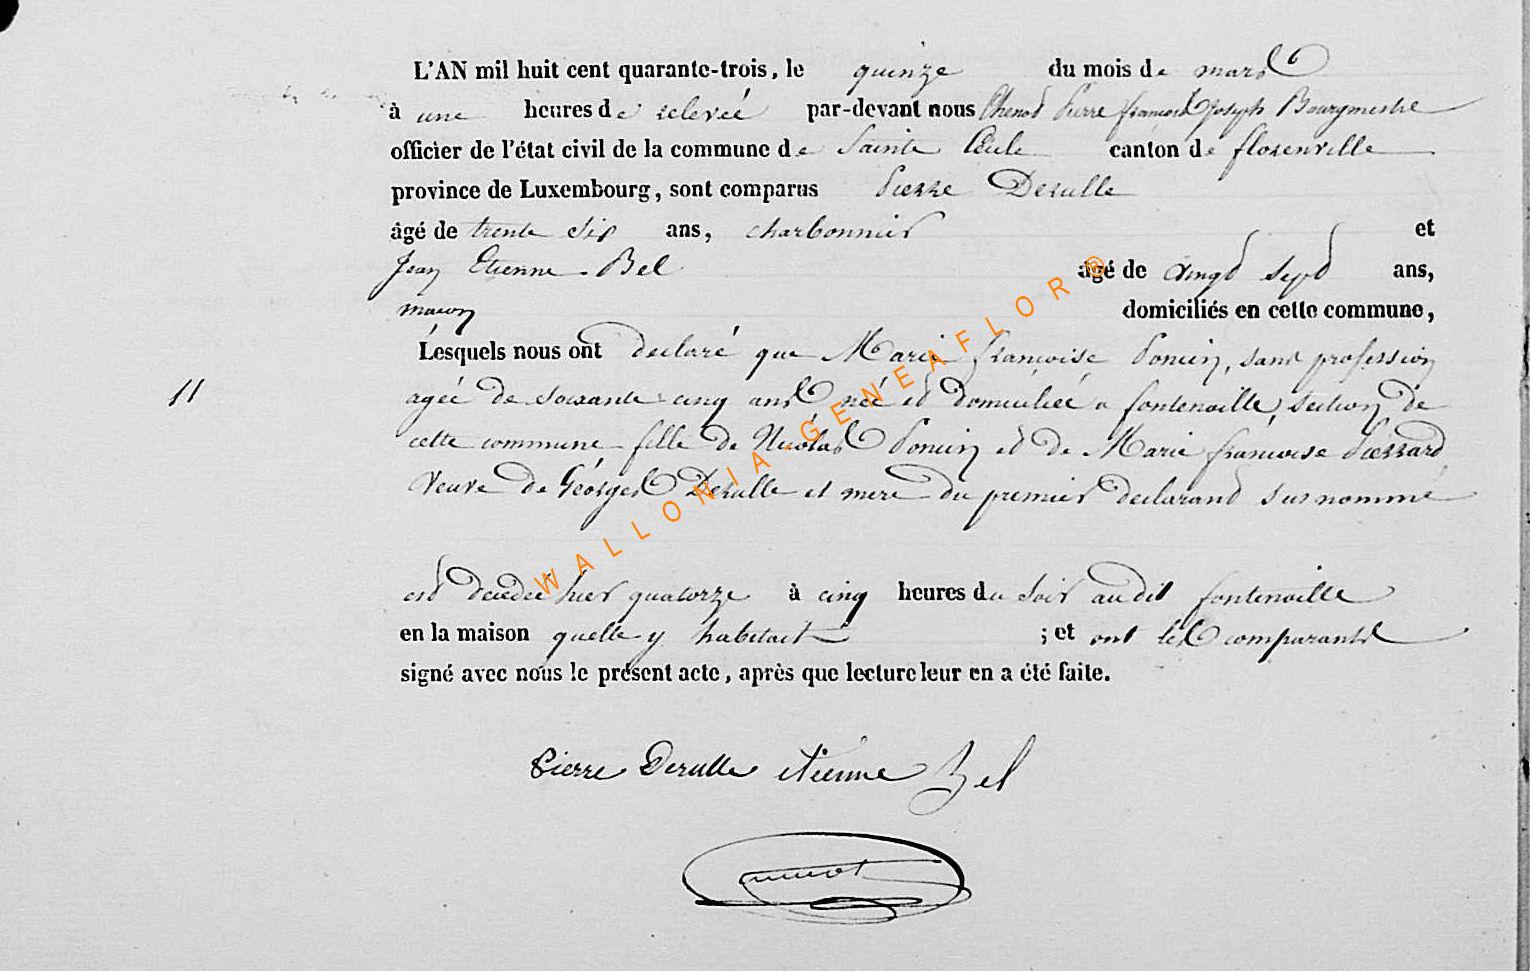 L'AN mil huit cent quarante-trois, le quinze du mois de mars
à une heures de relevée par-devant nous Chenot Pierre françois Joseph Bourgmestre
officier de l'état civil de la commune de Sainte Cécile canton de florenville
province de Luxembourg, sont comparus Pierre Derulle
âgé de trente six ans, charbonnier et
Jean Etienne Bel âgé de vingt sept ans,
macon domiciliés en cette commune,
Lesquels nous ont declaré que Marie françoise Poncin, sans profession
11 agée de soixante cinq ans, née et domiciliée a fontenoille, section de
cette commune fille de Nicolas Poncin et de Marie françoise
Veuve de Géorges Derulle et mere du premier declarant sus nommé
est decedée hier quatorze à cinq heures du soir audit fontenoille
en la maison quelle y habitait ; et ont les comparants
signé avec nous le présent acte, après que lecture leur en a été faite.
Pierre Derulle etienne Bel
WALLONIA-GENEAFLOR®